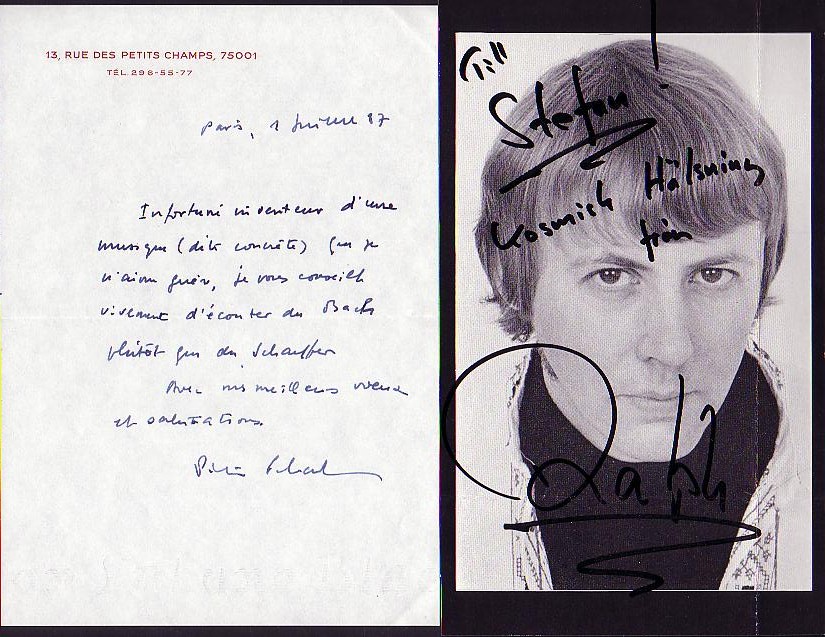 13, RUE DES PETITS CHAMPS, 75001
TÉL. 296-55-77
Paris, 1 Juillet 87
Infortuné inventeur d'une
musique (dite concrète) que je
n'aime guère, je vous conseille
vivement d'écouter du Bach
plutôt que du Schaeffer
Avec mes meilleurs voeux
et salutations.
Till
Stefan!
Kosmisk Hälsning
från
Ralph